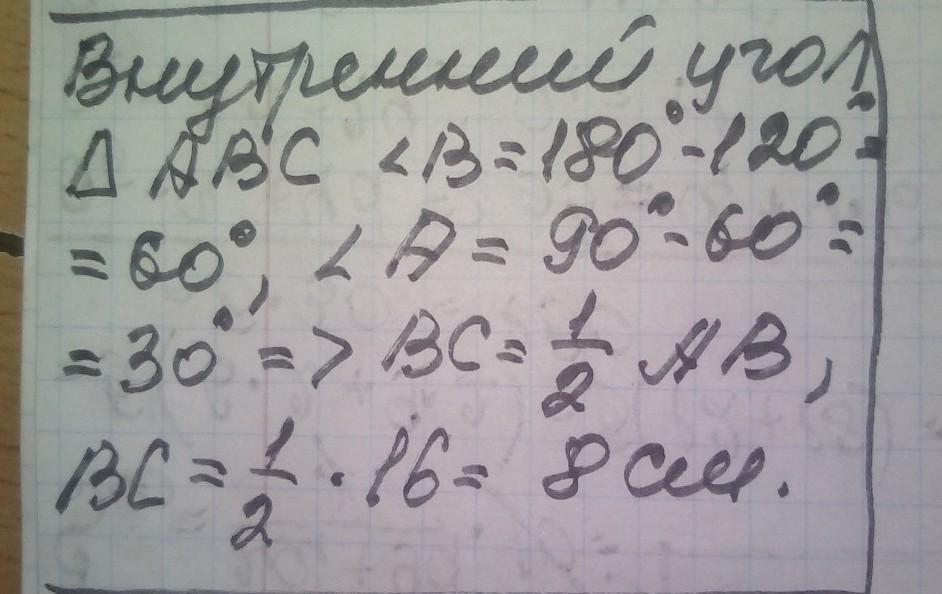 Внутренний угол
Δ ABC ∠B = 180° - 120° =
= 60°, ∠A = 90° - 60° =
= 30° => BC = 1/2 AB,
BC = 1/2 · 16 = 8 см.